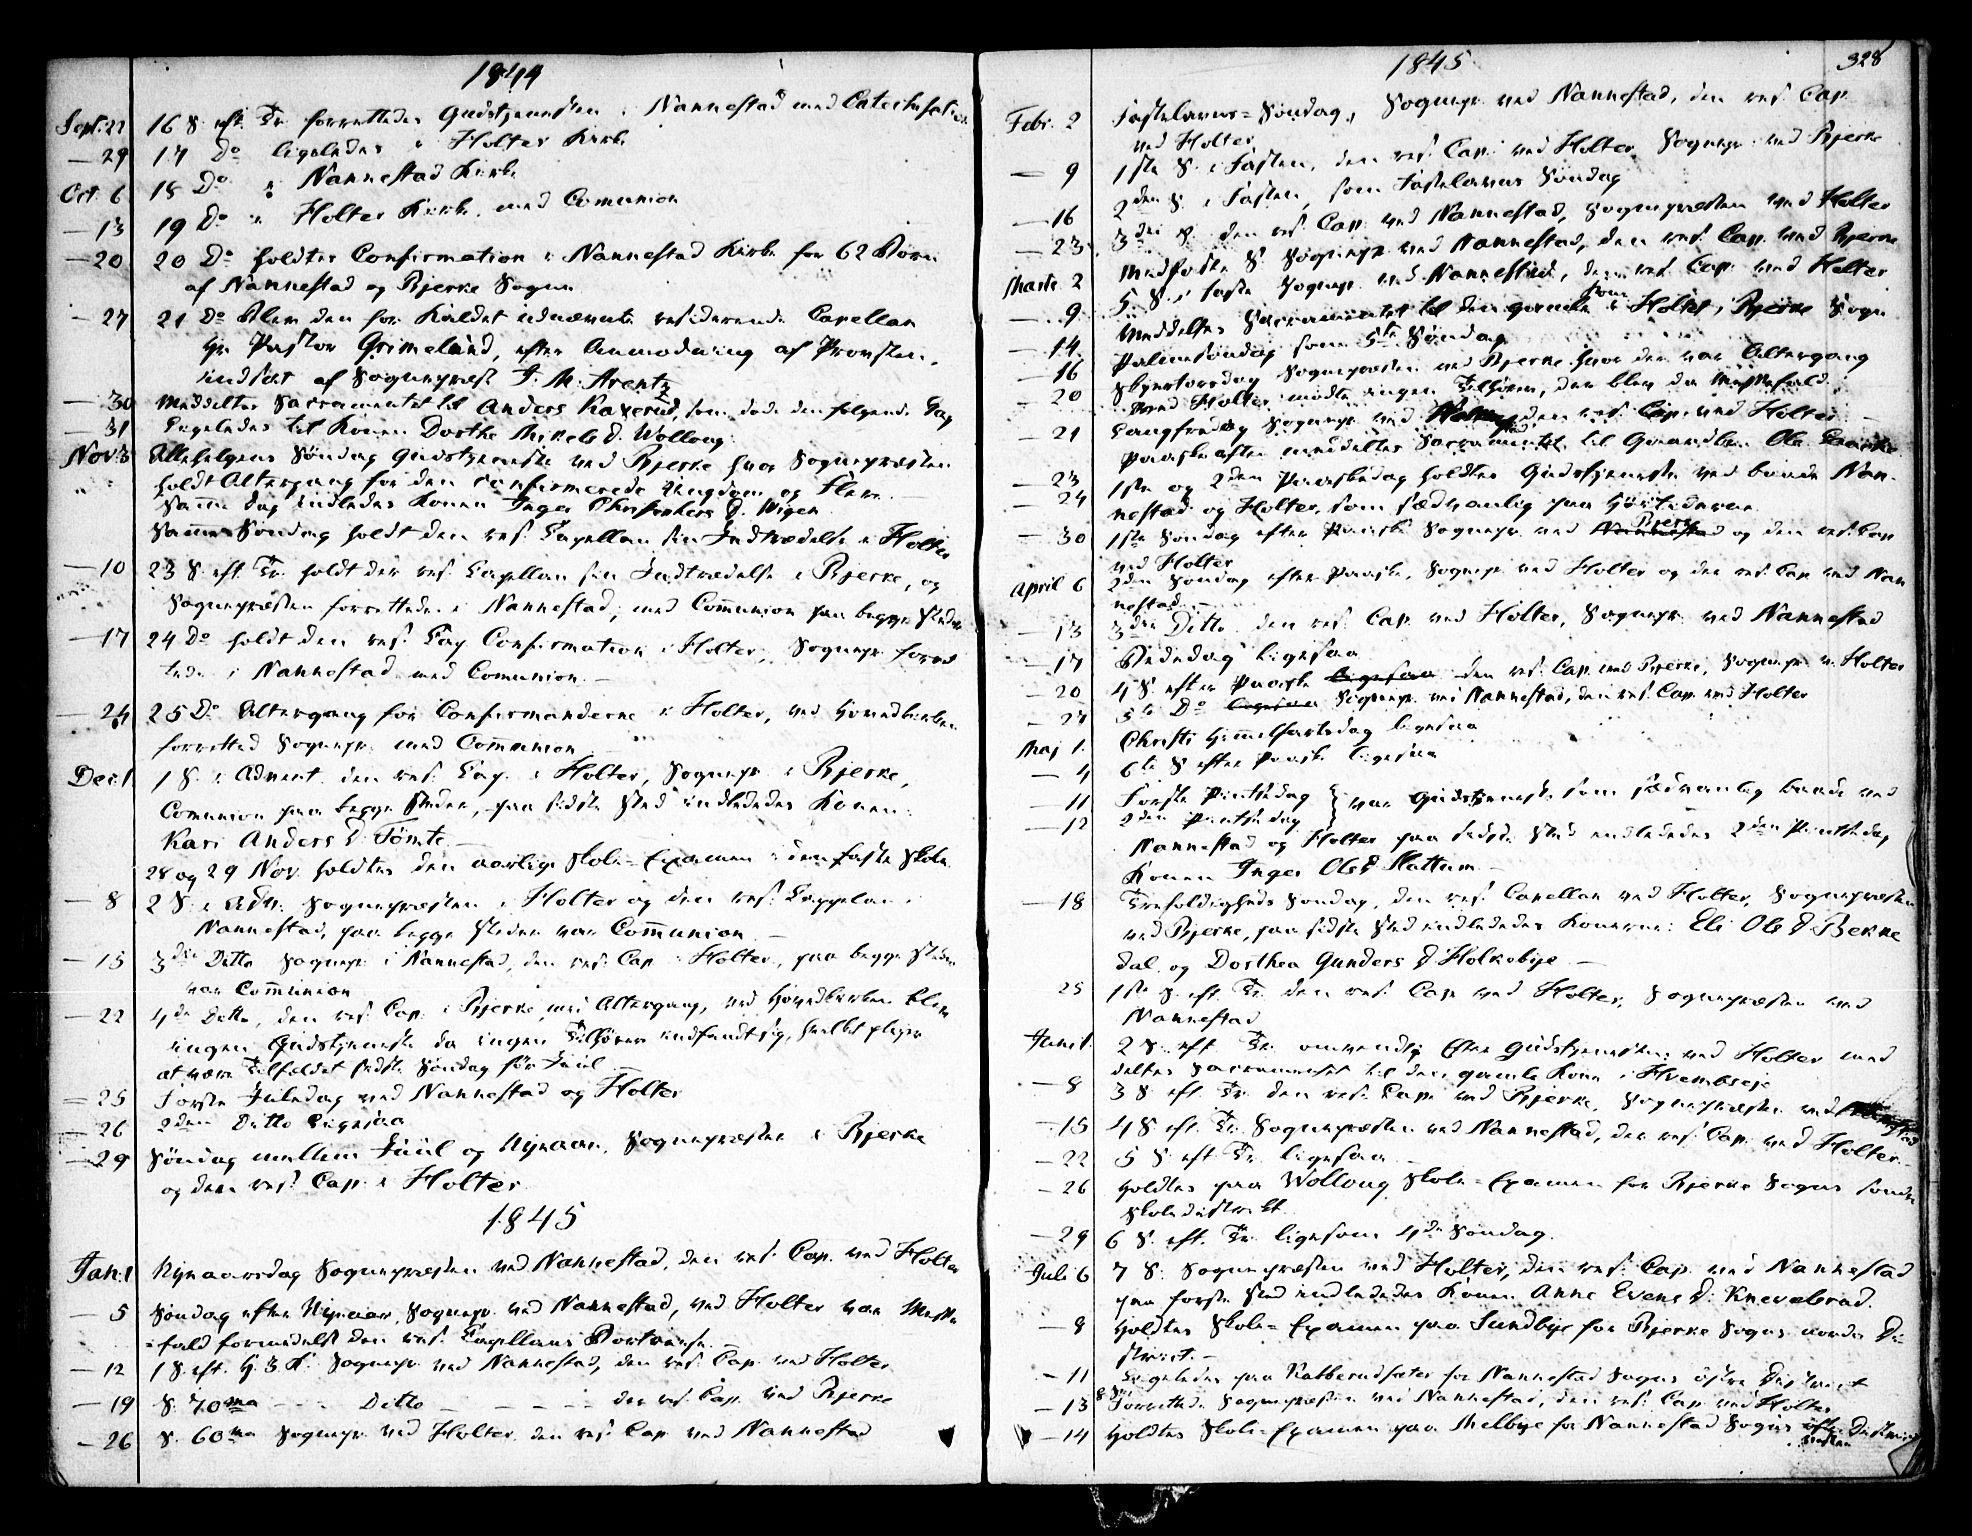 1844
Sept: 22 16 S. eft. Tr. forrettedes Gudstjenesten i Nannestad med Catechisation
— 29 17 Do ligeledes i Holter Kirke
Oct. 6 18 Do i Nannestad Kirke
— 13 19 Do i Holter Kirke med Comunion
— 20 20 Do holdtes Confirmation i Nannestad Kirke for 62 Børn
af Nannestad og Bjerke Sogne
— 27 21 Do Blev den for Kaldet udnævnte residerende Capellan
Hr Pastor Grimelund, efter Anmodning af Provsten,
indsat af Sognepræst J. M. Arentz
— 30 Meddeltes Sacramentet til Anders Kaxerud, som døde den følgende Dag
— 31 Ligeledes til Konen Dorthe Mikels D. Wolloug
Nov: 3 Allehelgens Søndag Gudstjeneste ved Bjerke hvor Sognepræsten
holdt Altergang for den confirmerede Ungdom og Flere.
Samme Dag indledes Konen Inger Christophers D. Wigen
Samme Søndag holdt den res: Capellan sin Indtrædelse i Holter
— 10 23 S. eft. Tr. holdt der res: Capellan sin Indtrædelse i Bjerke, og
Sognepræsten forrettede i Nannestad, med Communion paa begge Steder
— 17 24 Do holdt den res: Cap Confirmation i Holter, Sognepr. forret
tede i Nannestad med Comunion. —
— 24 25 Do Altergang for Confirmanderne i Holter, ved Hovedkirken
forretted Sognepr. med Communion
Dec: 1 1 S. i Advent den res: Cap. i Holter, Sognepr. i Bjerke,
Comunion paa begge Steder, paa sidste Sted indledes Konen:
Kari Anders D. Tømte —
28 og 29 Nov. holdtes den aarlige Skole-Examen i den faste Skole
— 8 2 S. i Adv. Sognepræsten i Holter og den res: Cappelan i
Nannestad, paa begge Steder var Communion —
— 15 3die Ditto Sognepr i Nannestad, den res: Cap i Holter, paa begge Steder
var Communion
— 22 4de Ditto, den res: Cap. i Bjerke med Altergang, ved Hovedkirken blev
ingen Gudstjeneste da ingen Tilhørere indfandt sig, hvilket pleier
at være Tilfældet sidste Søndag før Juul —
— 25 Første Juledag ved Nannestad og Holter
— 26 2den Ditto Ligesaa
— 29 Søndag mellem Juul og Nyeaar, Sognepræsten i Bjerke
og den res: Cap. i Holter
1845
Jan: 1 Nyaarsdag Sognepræsten ved Nannestad, den res: Cap. ved Holter
— 5 Søndag efter Nyeaar, Sognepr. ved Nannestad, ved Holter var Messe
fald formedelst den res: Capellans Bortreise. —
— 12 1 S. eft. H. 3 K. Sognepr ved Nannestad, den res: Cap. ved Holter
— 19 S. 70ma - - - Ditto - - - - den res: Cap. ved Bjerke
— 26 S. 60ma Sognepr ved Holter, den res: Cap ved Nannestad
1845
328
Febr. 2 Fastelavns-Søndag, Sognepr ved Nannestad, den res: Cap
ved Holter
— 9 1ste S. i Fasten, den res: Cap: ved Holter Sognepr. ved Bjerke
— 16 2den S. i Fasten, som Fastelavns Søndag
— 23 3die S. den res: Cap. ved Nannestad, Sognepræsten ved Holter
Marts 2 Midfaste S Sognepr ved Nannestad, den res: Cap. ved Bjerke
— 9 5 S. i Faste Sognepr. ved Nannestad, den res: Cap: ved Holter
— 14 Meddeltes Sacramentet til den gamle Kone i Holtet i Bjerke Sogn
— 16 Palmesøndag som 5te Søndag
— 20 Skjertorsdag Sognepræsten ved Bjerke hvor der var Altergang
Ved Holter mødte ingen Tilhører, der blev da Messefald.
— 21 Langfredag Sognepr ved den res: Cap: ved Holter —
Paaskeaften meddeltes Sacramentet til Grandbn. Ole
— 23 1ste og 2den Paaskedag holdtes Gudstjeneste ved baade Nan-
— 24 nestad og Holter, som sædvanlig paa Høitiderne
— 30 1ste Søndag efter Paaske Sognepr ved Nannestad Bjerke og den res: Cap
ved Holter
April 6 2den Søndag efter Paaske, Sognepr ved Holter og den res: Cap ved Nan
nestad. —
— 13 3die Ditto den res: Cap. ved Holter, Sognepr. ved Nannestad
— 17 Bededag ligesaa
— 20 4 S. efter Paaske ligesaa den res: Cap. ved Bjerke, Sognepr. v. Holter
— 27 5te Do Ligesaa Sognepr. ved Nannestad, den res: Cap ved Holter
Maj 1. Christi Himmelfartsdag ligesaa
— 4 6te S efter Paaske ligesaa
— 11 Første Pintsedag } var Gudstjeneste som sædvanlig baade ved
— 12 2den Pintsedag
Nannestad og Holter paa sidste Sted indledes 2den Pintsedag
Konen Inger Ols D Slattum —
— 18 Trefoldigheds Søndag, den res: Capellan ved Holter, Sognepræsten
ved Bjerke, paa sidste Sted indledes Konerne: Eli Ols D Bekke
dal og Dorthea Gunders D Holkebye —
25 1ste S. eft. Tr. den res: Cap ved Holter, Sognepræsten ved
Nannestad
Juni 1. 2 S. eft Tr. omvendt. Efter Gudstjenesten ved Holter med
deltes Sacramentet til den gamle Kone i Hvembseje
— 8 3 S eft Tr. den res: Cap: ved Bjerke, Sognepræsten ved Nannestad
— 15 4 S eft. Tr. Sognepræsten ved Nannestad, den res: Cap: ved Holter —
— 22 5 S. eft Tr. ligesaa —
— 26 Holdtes paa Wolloug Skole-Examen for Bjerke Sogns søndre
Skoledistrikt.
— 29 6 S. eft. Tr. ligesom 4de Søndag.
Juli 6 7 S. Sognepræsten ved Holter, den res: Cap. ved Nannestad
paa første Sted indledes Konen Anne Evens D. Knevelsrud.
— 8 Holdtes Skole-Examen paa Sundbye for Bjerke Sogns nordre Di
strict. —
— 11 Ligeledes paa Kabberudsæter for Nannestad Sogns østre District
— 13 8 S. Forrettede Sognepræsten ved Nannestad, den res: Cap. ved Holter
— 14 Holdtes Skole-Examen paa Melbye for Nannestad Sogns østre District
vestre